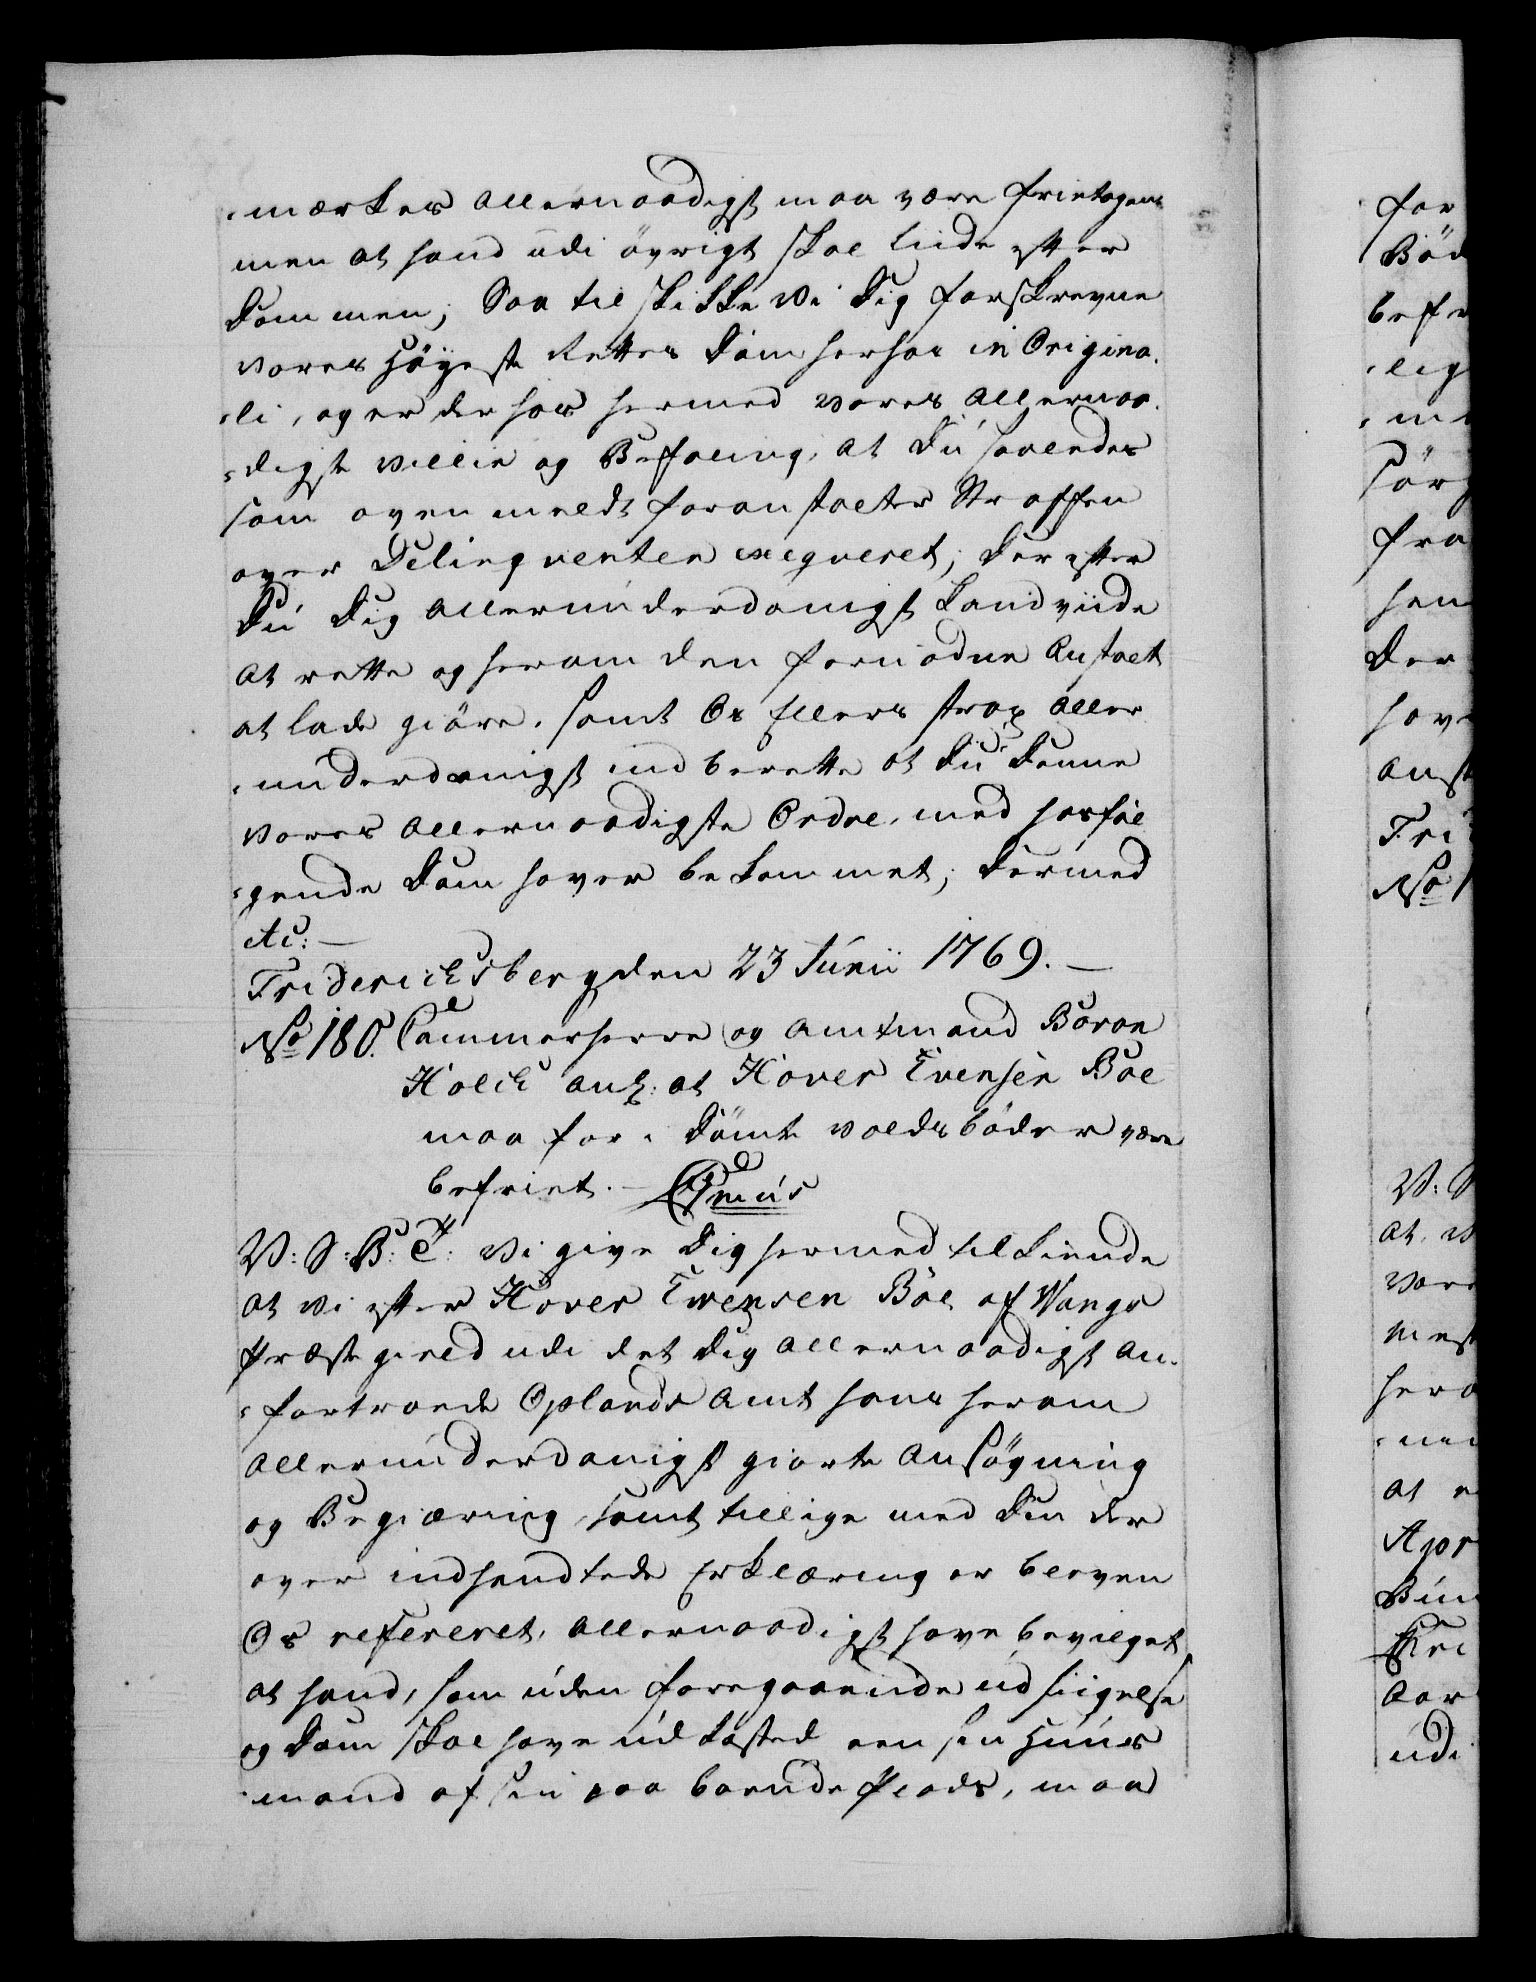 -mærkes Allernaadigst maa være frietagen
men at hand udi övrigt skal liide efter
Dommen; Saa tilskikke Vi Dig forskrevne
vores Höyeste Rettes Dom herhos in Origina-
-li, og er der hos hermed vores Allernaa-
-digste Villie og Befaling, at Du saaledes
som ovenmeldt foranstalter Straffen
over Delinqventen exeqveret; Der efter
Du Dig Allerunderdanigst Land viide
at rette og herom den fornödne Anstalt
at lade giöre, samt Os Ellers strax Aller
-underdanigst indberette at Du Denne
vores Allernaadigste Ordre, med hosföl
-gende Dom haver bekommet; Dermed
etc: —
Friderichsberg den 23 Junii 1769. —
No 180. Cammerherre og Amtmand Baron
Holck anl: at Haver Evensen Boe
maa for i Dömte Voldsböder være
befriet. —
V: S: B: T: Vi give Dig hermed tilkiende
at Vi efter Haver Evensen Böe af Wangs
Præstegield udi det Dig Allernaadigst An-
-fortroede Oplands Amt hans herom
Allerunderdanigst giorte Ansögning
og Begiæring, samt tillige med Din der
over indsendtede Erklæring er bleven
Os refereret, Allernaadigst have bevilget
at hand, som uden foregaaende udsiigelse
og Dom skal have udkasted een sin Huus
-mand af sin paaboende Plads, maa
for
Böd
befr
-lig
för
fra
hen
Der
hav
Anst
Fri
No 1
V: S
at, V
vore
mest
hero
-nin
at e
Apr
Bun
Aar
udi